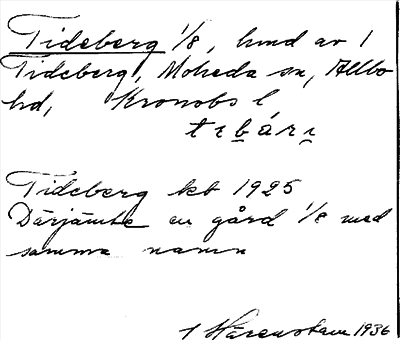 Tideberg 1/8, hmd av 1
Tideberg, Moheda sn, Allbo
hd, Kronobs l
Tideberg kb 1925
Därjämte en gård 1/8 med
samma namn
1 Härenstam 1936